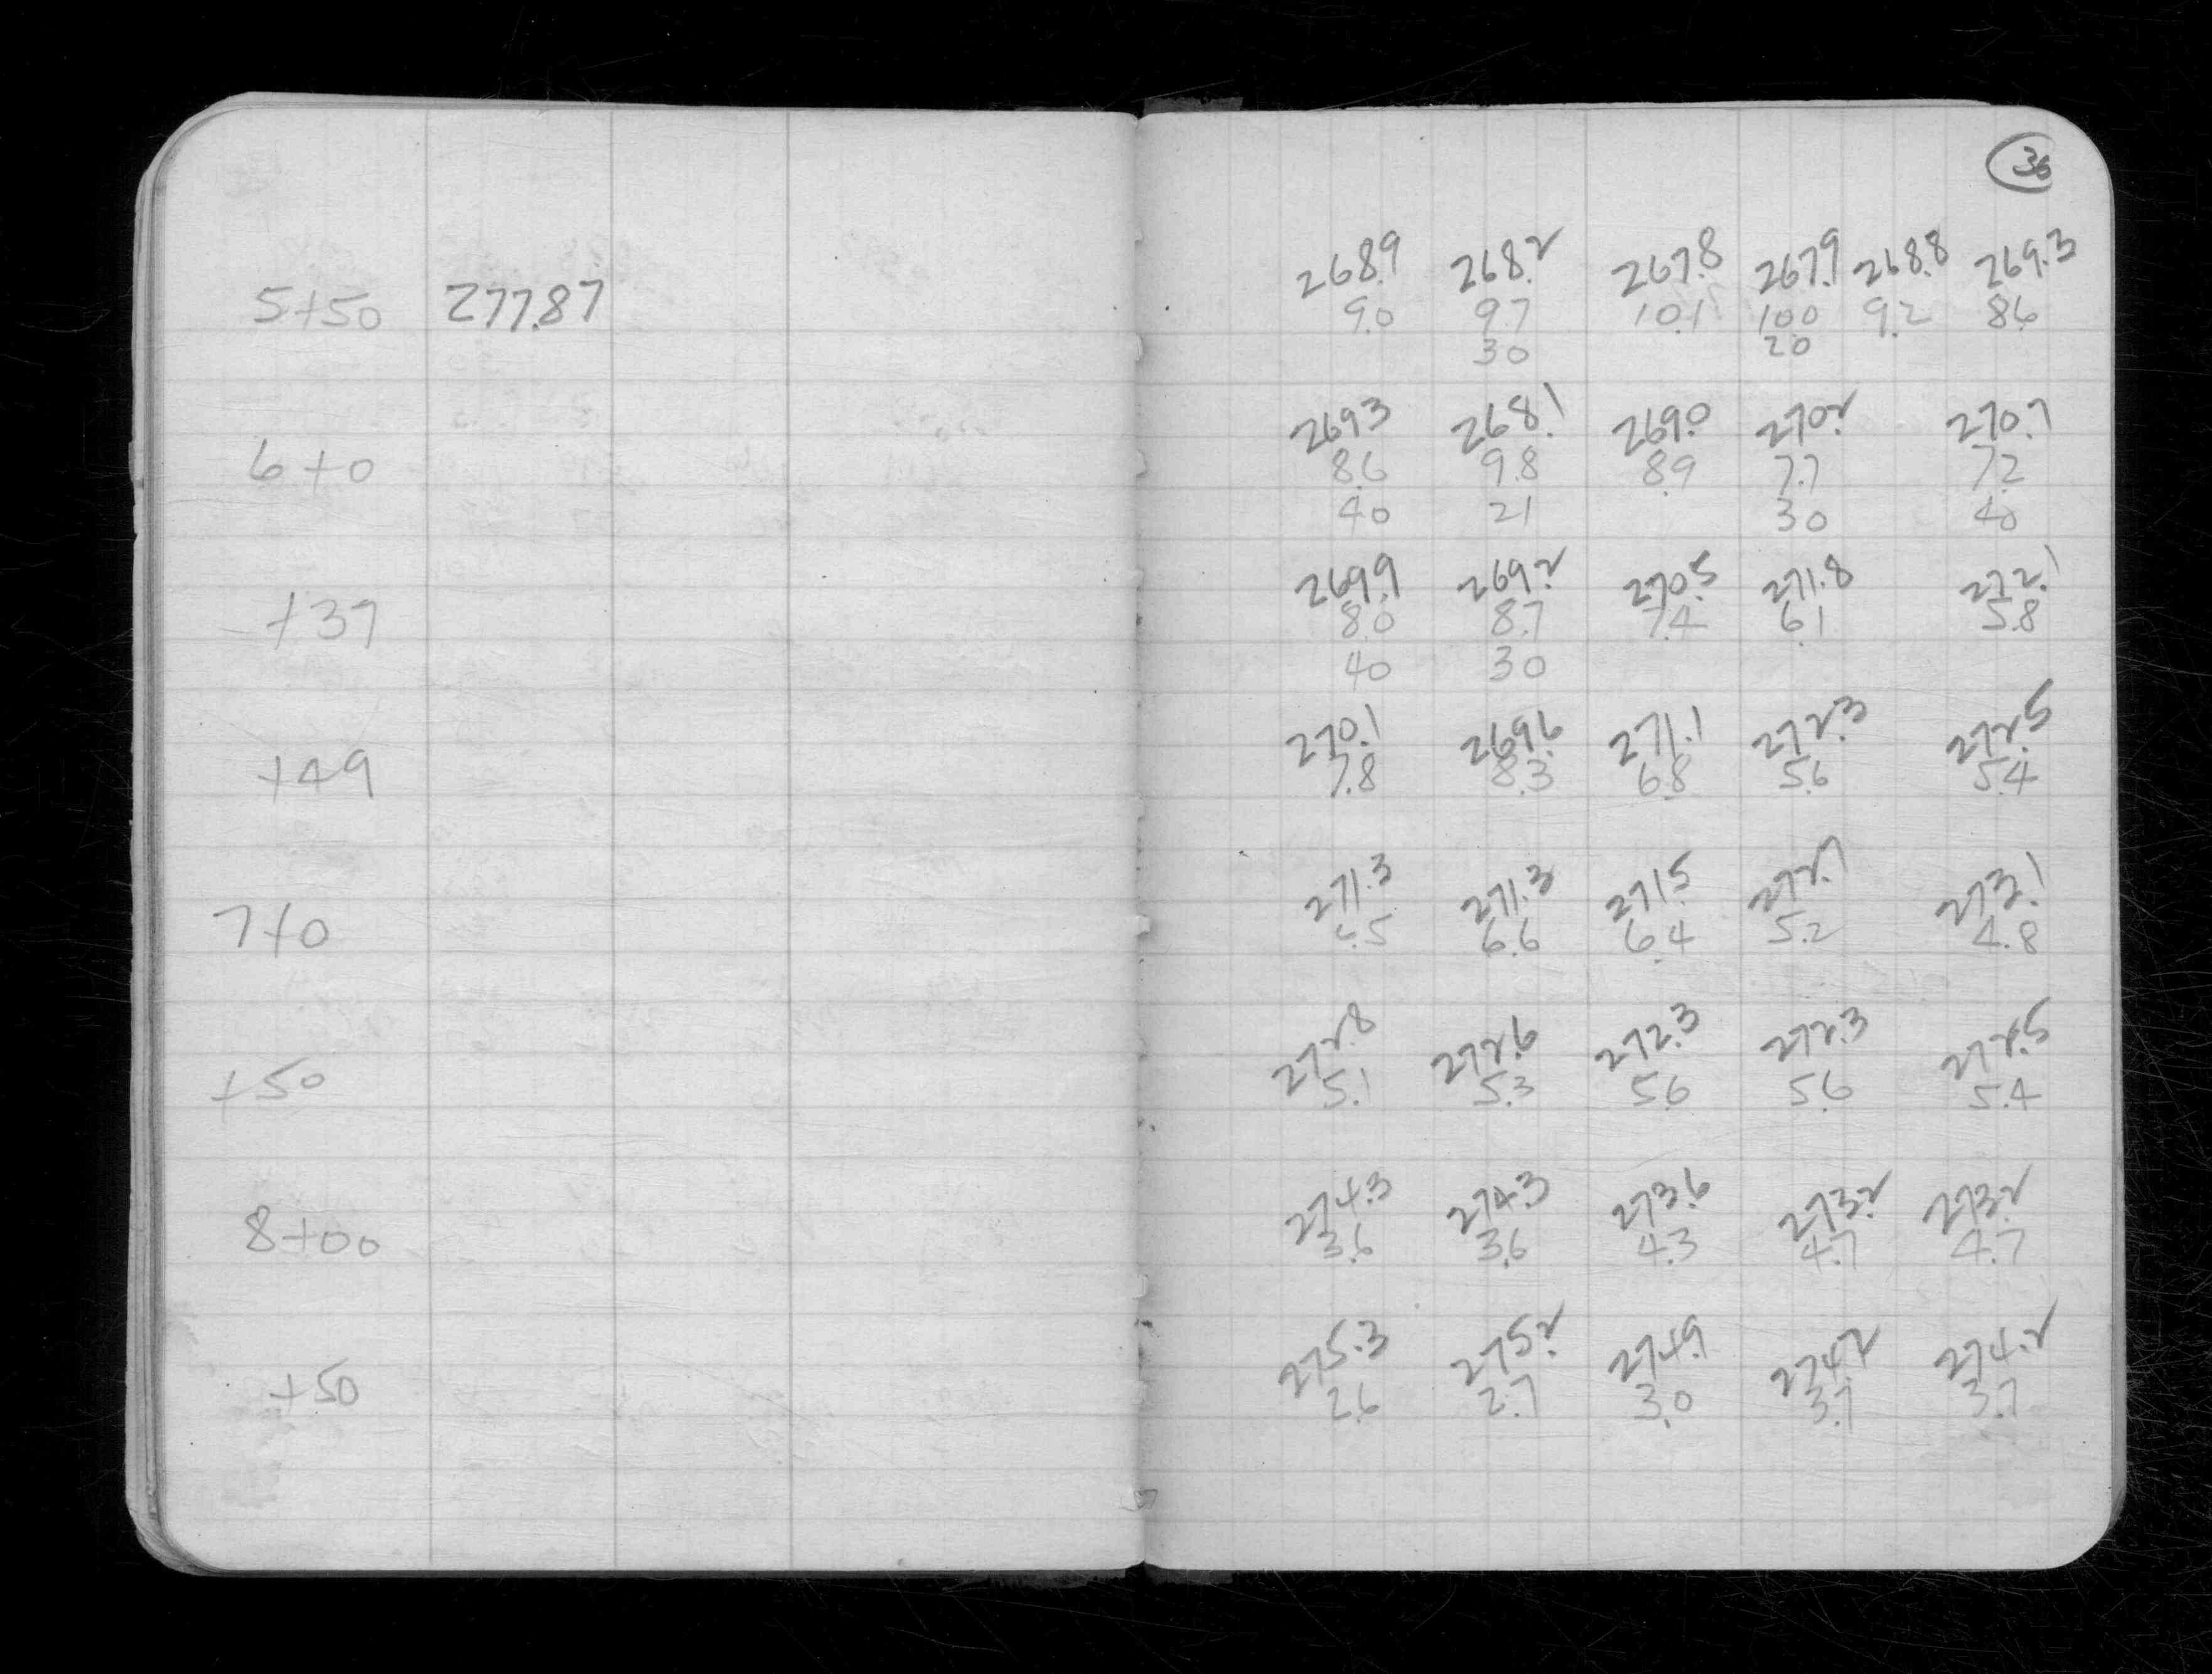 36
268.9 268.2 267.8 267.9 268.8 269.3
5+50 277.87 9.0 9.7 10.1 10.0 9.2 8.6
30 20
269.3 268.1 269.0 270.2 270.7
6+0 8.6 9.8 8.9 7.7 7.2
40 21 30 40
269.9 269.2 270.5 271.8 272.1
+37 8.0 8.7 7.4 6.1 5.8
40 30
270.1 269.6 271.1 272.3 272.5
+49 7.8 8.3 6.8 5.6 5.4
271.3 271.3 271.5 272.7 273.1
7+0 6.5 6.6 6.4 5.2 4.8
272.8 272.6 272.3 272.3 272.5
+50 5.1 5.3 5.6 5.6 5.4
274.3 274.3 273.6 273.2 273.2
8+00 3.6 3.6 4.3 4.7 4.7
275.3 275.2 274.9 274.2 274.2
+50 2.6 2.7 3.0 3.7 3.7